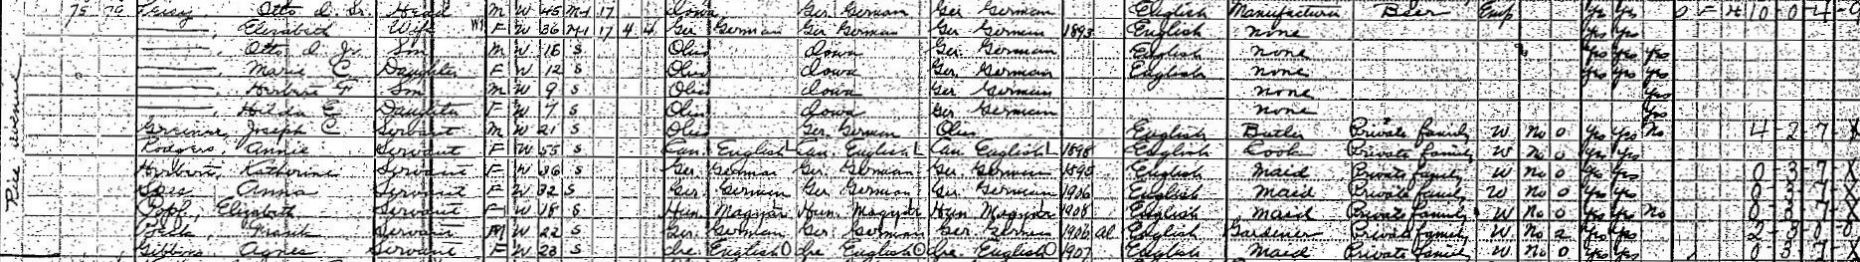 75 Otto I. Sr. Head M W 45 M1 17 Iowa Ger. German Ger German English Manufacturer Beer Emp Yes Yes O F H 10-0-4
Elizabeth Wife F W 36 M1 17 4 4 Ger German Ger German Ger German 1893 English none Yes Yes
Otto I. Jr. Son M W 16 S Ohio Iowa Ger. German English none Yes Yes Yes
Marie C Daughter F W 12 S Ohio Iowa Ger. German English none Yes Yes Yes
Herbert F Son M W 9 S Ohio Iowa Ger German none Yes
Hilda E Daughter F W 7 S Ohio Iowa Ger German none Yes
Joseph C Servant M W 21 S Ohio Ger. German Ohio English Butler Private family W No 0 Yes Yes No 4-2-7-X
Rodgers, Annie Servant F W 55 S Can. English Can. English Can English 1898 English Cook Private family W No 0 Yes Yes
Katherine Servant F W 36 S Ger German Ger. German Ger. German English Maid Private family W No 0 Yes Yes 0-3-7-X
Anna Servant F W 32 S Ger. German Ger. German Ger. German 1906 English Maid Private family W No 0 Yes Yes 0-3-7-X
Elizabeth Servant F W 18 S Hun. Magyar Hun. Magyar Hun Magyar 1908 English Maid Private family W No 0 Yes Yes No 0-3-7-X
Frank Servant M W 22 S Ger. German Ger. German Ger. German 1906 al English Gardener Private family W No 2 Yes Yes 2-3-0-0
Gibbons, Agnes Servant F W 23 S Ire. English Ire English Ire. English 1907 English Maid Private family W No 0 Yes Yes 0-3-7-X
avenue